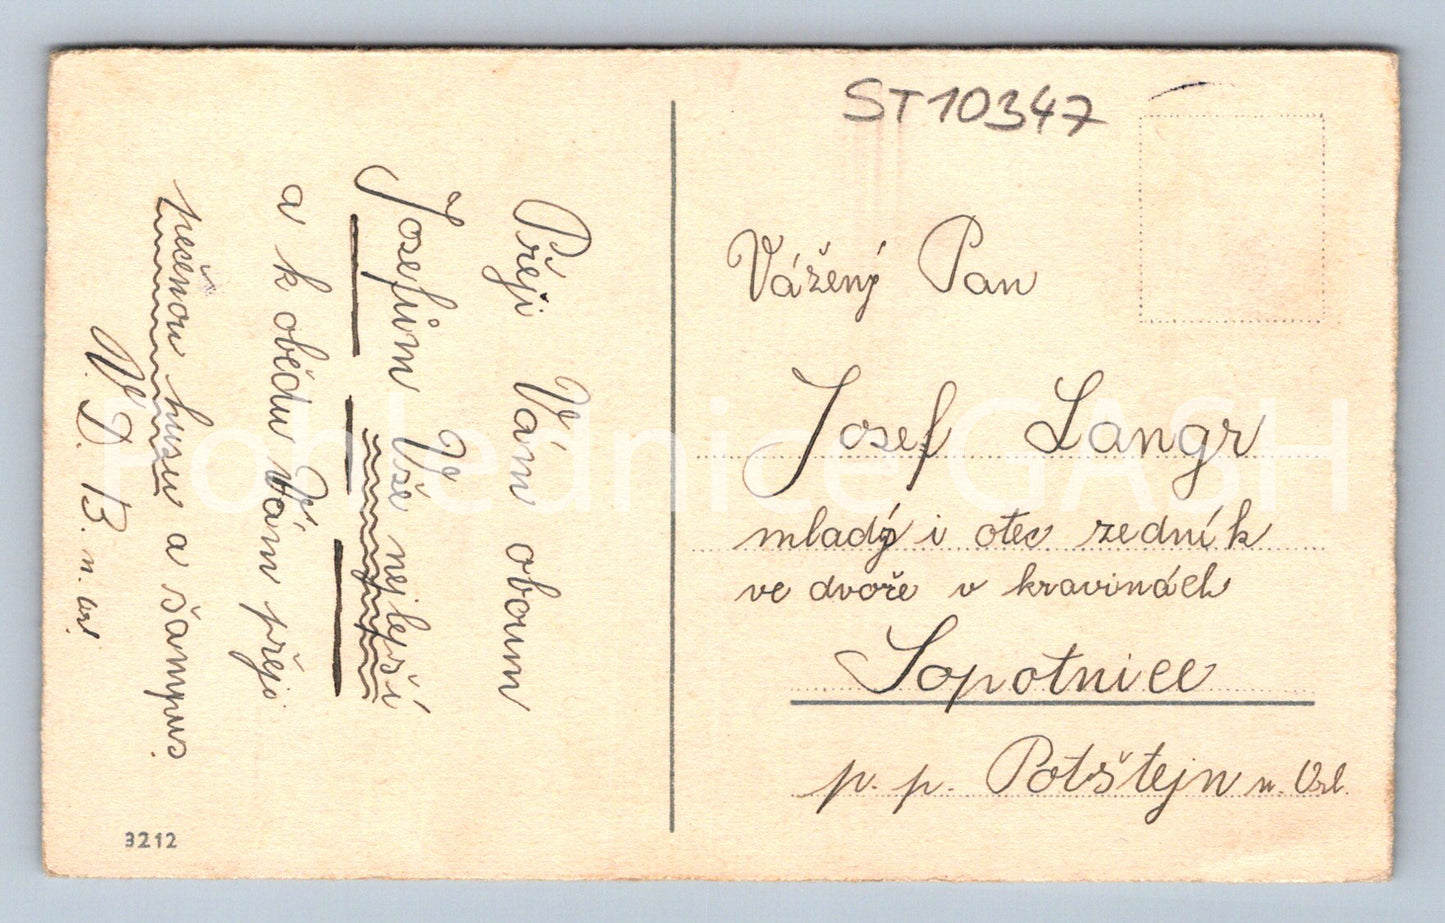 ST10347
Přeji Vám oboum
Josefům Vše nejlepší
a k obědu Vám přeji
pečenou husu a šampus.
V. D. B. n. Orl.
Vážený Pan
Josef Langr
mladý i otec zedník
ve dvoře v kravinách
Sopotnice
p. p. Potštejn n. Orl.
3212
Pohlednice GASH